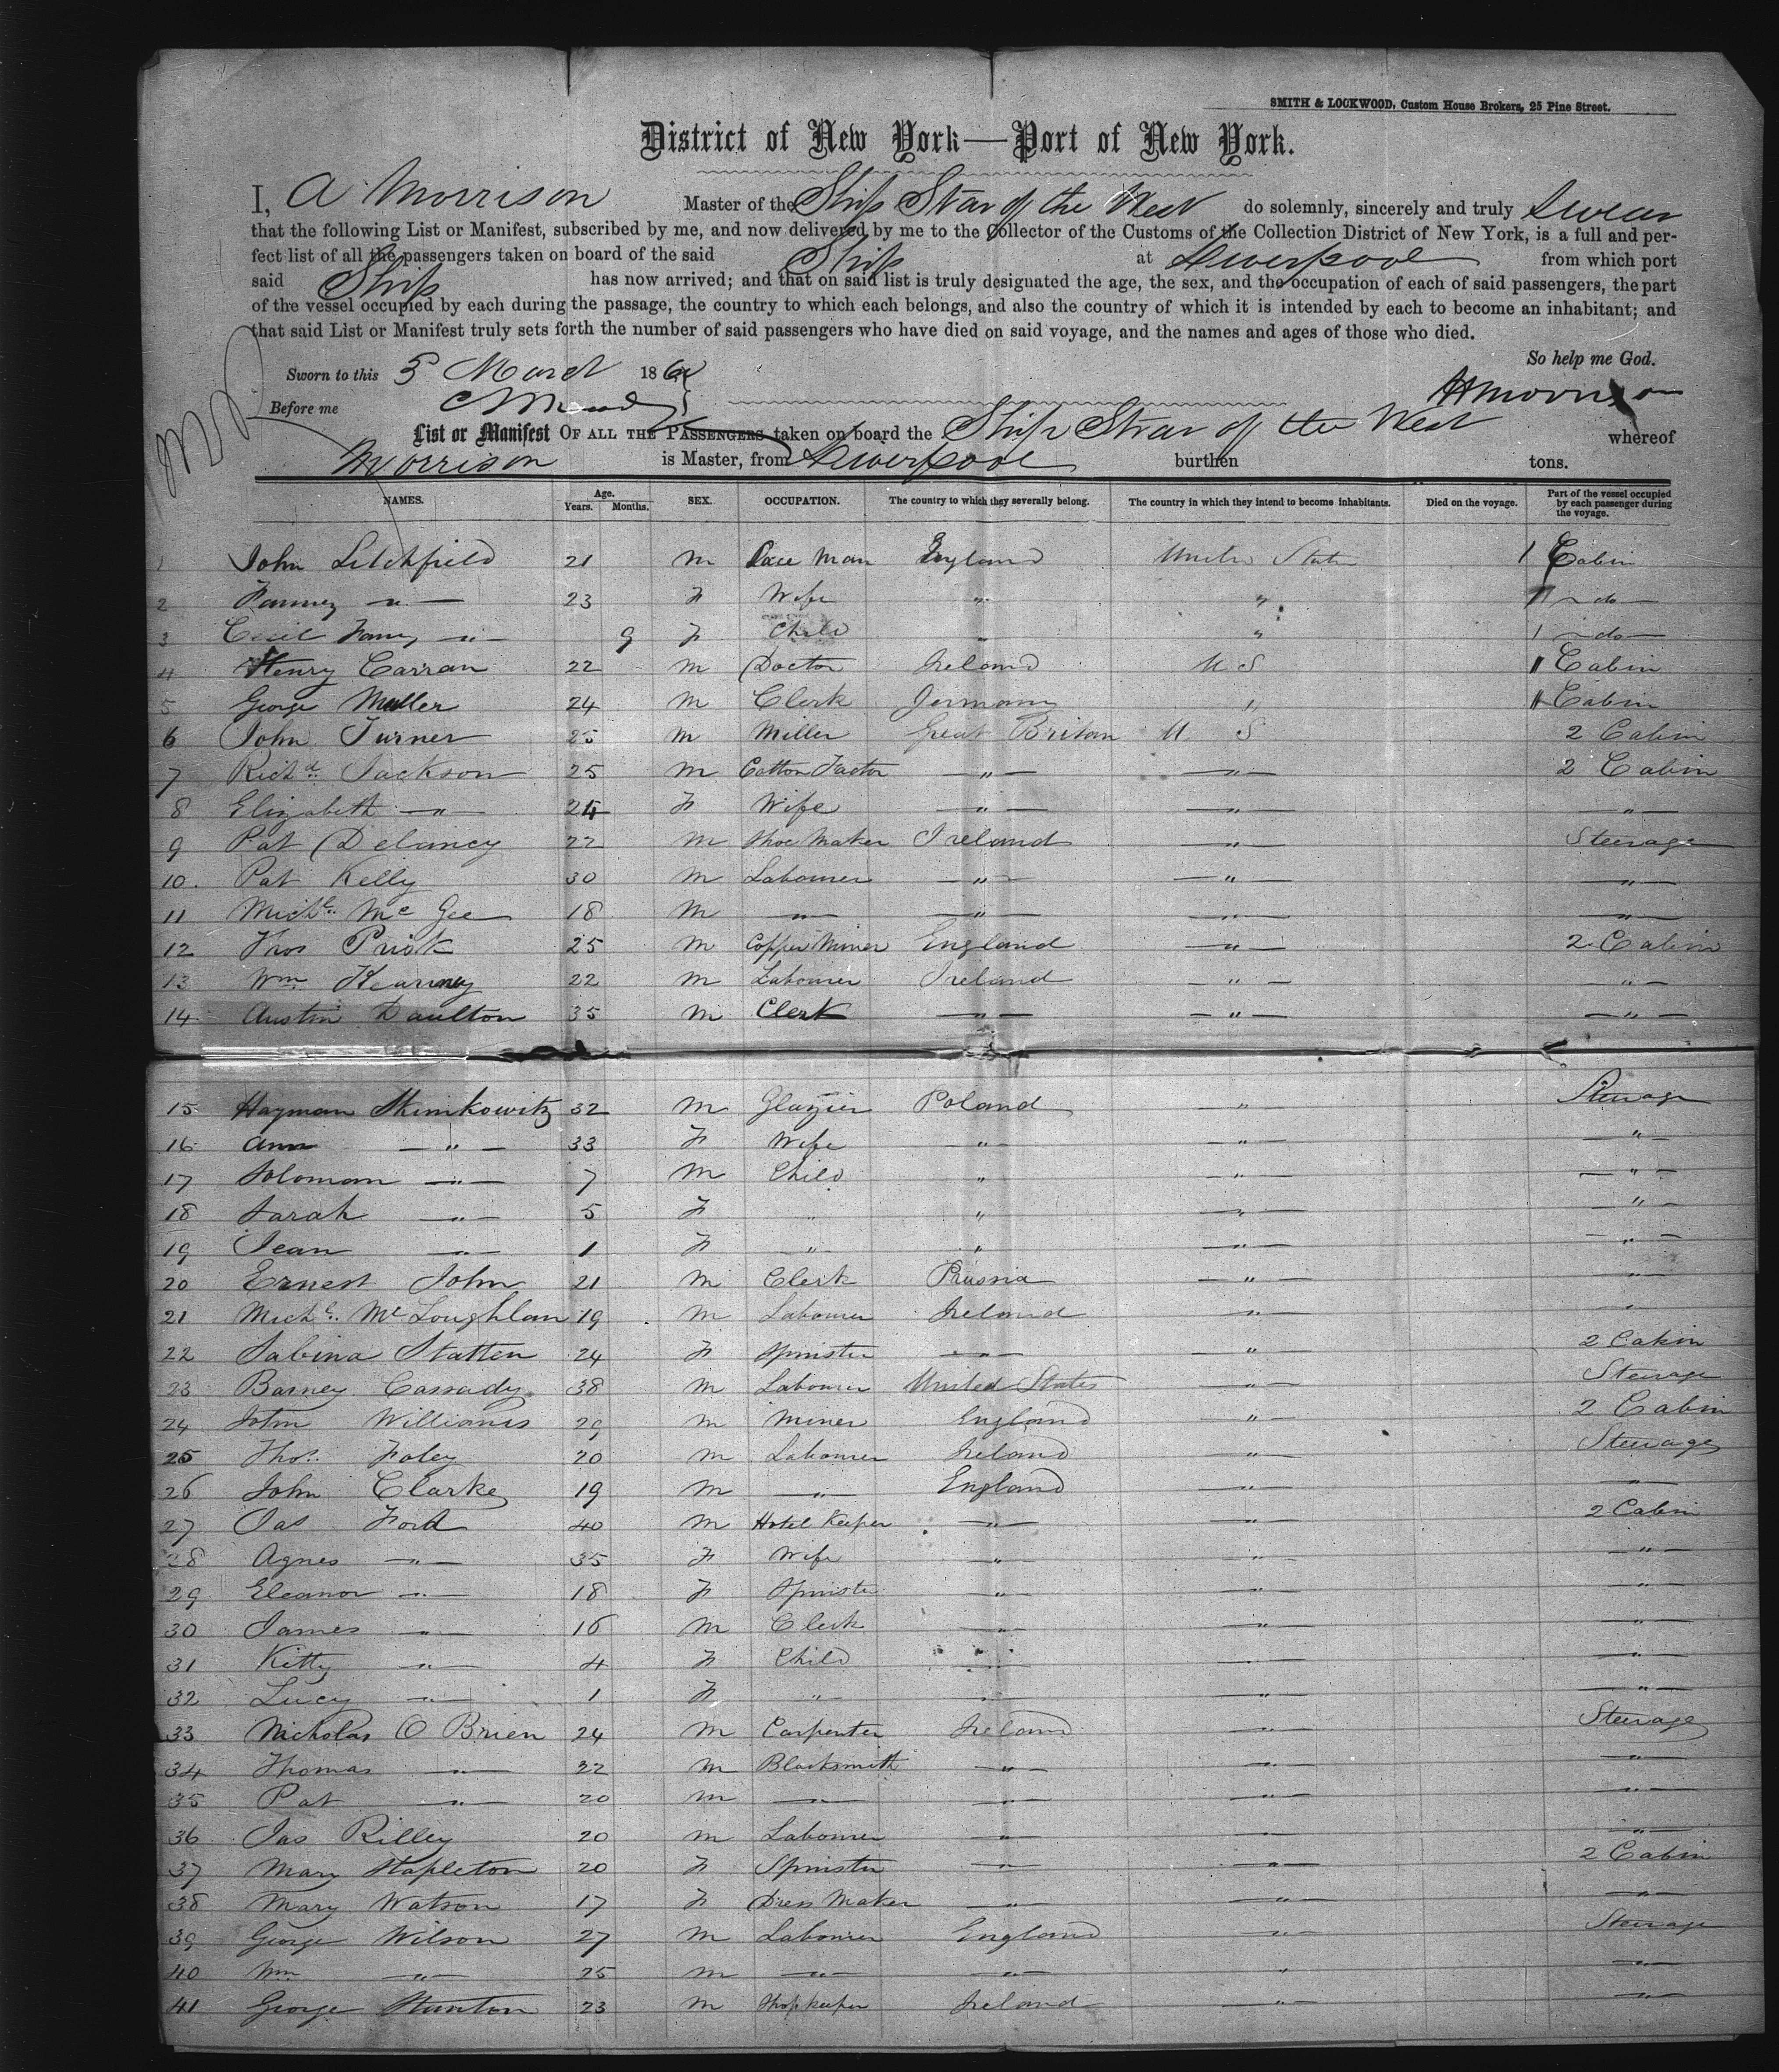 SMITH & LOCKWOOD, Custom House Brokers, 25 Pine Street.
District of New York—Port of New York.
I, A Morrison Master of the Ship Star of the West do solemnly, sincerely and truly Swear
that the following List or Manifest, subscribed by me, and now delivered by me to the Collector of the Customs of the Collection District of New York, is a full and per-
fect list of all the passengers taken on board of the said Ship at Liverpool from which port
said Ship has now arrived; and that on said list is truly designated the age, the sex, and the occupation of each of said passengers, the part
of the vessel occupied by each during the passage, the country to which each belongs, and also the country of which it is intended by each to become an inhabitant; and
that said List or Manifest truly sets forth the number of said passengers who have died on said voyage, and the names and ages of those who died.
So help me God.
Sworn to this 5 March 186
Before me
Morrison
List or Manifest OF ALL THE PASSENGERS taken on board the Ship Star of the West whereof
Morrison is Master, from Liverpool burthen tons.
NAMES. Age. Years. Months. SEX. OCCUPATION. The country to which they severally belong. The country in which they intend to become inhabitants. Died on the voyage. Part of the vessel occupied by each passenger during the voyage.
1 John Litchfield 21 M England United States 1 Cabin
2 Fanney " 23 F Wife " " 1 do
3 Cecil Fanny " 9 F Child " " 1 do
4 Henry Carran 22 M Doctor Ireland U S 1 Cabin
5 George Muller 24 M Clerk Jermany " 1 Cabin
6 John Turner 25 M Miller Great Britan U S 2 Cabin
7 Richd Jackson 25 M Cotton Factor " " 2 Cabin
8 Elizabeth " 24 F Wife " " "
9 Pat Delancy 22 M Shoe Maker Ireland " Steerage
10. Pat Kelly 30 M Labourer " " "
11 Michl Mc Gee 18 M " " " "
12 Thos Prisk 25 M Copper Miner England " 2 Cabin
13 Wm Kearney 22 M Labourer Ireland " "
14 Austin Daulton 35 M Clerk " " "
15 Hayman Shinkowitz 32 M Glazier Poland " Steerage
16 Ann " 33 F Wife " " "
17 Soloman " 7 M Child " " "
18 Sarah " 5 F " " " "
19 Jean " 1 F " " " "
20 Ernest John 21 M Clerk Prussia " "
21 Michl McLoughlan 19 M Labourer Ireland " "
22 Sabina Statten 24 F Spinster " " 2 Cabin
23 Barney Cassady 38 M Labourer United States " Steerage
24 John Williams 29 M Miner England " 2 Cabin
25 Thos. Foley 20 M Labourer Ireland " Steerage
26 John Clarke 19 M " England " "
27 Jas Ford 40 M Hotel Keeper " " 2 Cabin
28 Agnes " 35 F Wife " " "
29 Eleanor " 18 F Spinster " " "
30 James " 16 M Clerk " " "
31 Kitty " 4 F Child " " "
32 Lucy " 1 F " " " "
33 Nicholas O Brien 24 M Carpenter Ireland " Steerage
34 Thomas " 22 M Blacksmith " " "
35 Pat " 20 M " " " "
36 Jas Rilley 20 M Labourer " " "
37 Mary Stapleton 20 F Spinster " " 2 Cabin
38 Mary Watson 17 F Dress Maker " " "
39 George Wilson 27 M Labourer England " Steerage
40 Wm " 25 M " " " "
41 George Stunton 23 M Shopkeeper Ireland " "